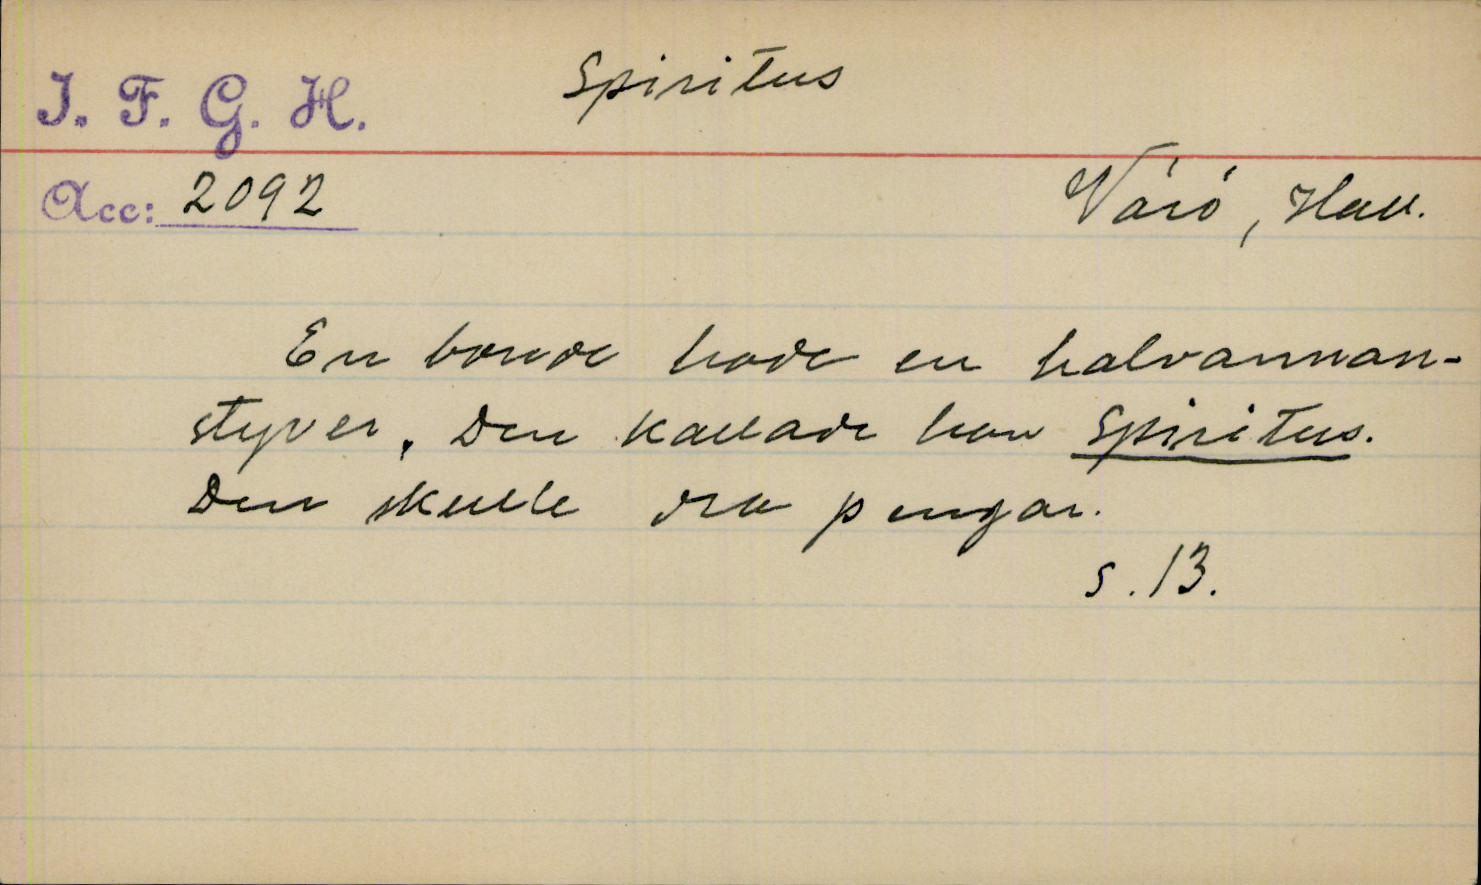 I. F. G. H.
Spiritus
Acc: 2092
Värö, Hall.
En bonde hade en halvannan-
styver. Den kallade han Spiritus.
Den skulle dra pengar.
s. 13.